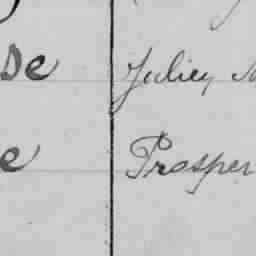 se Juliey
e Prosper